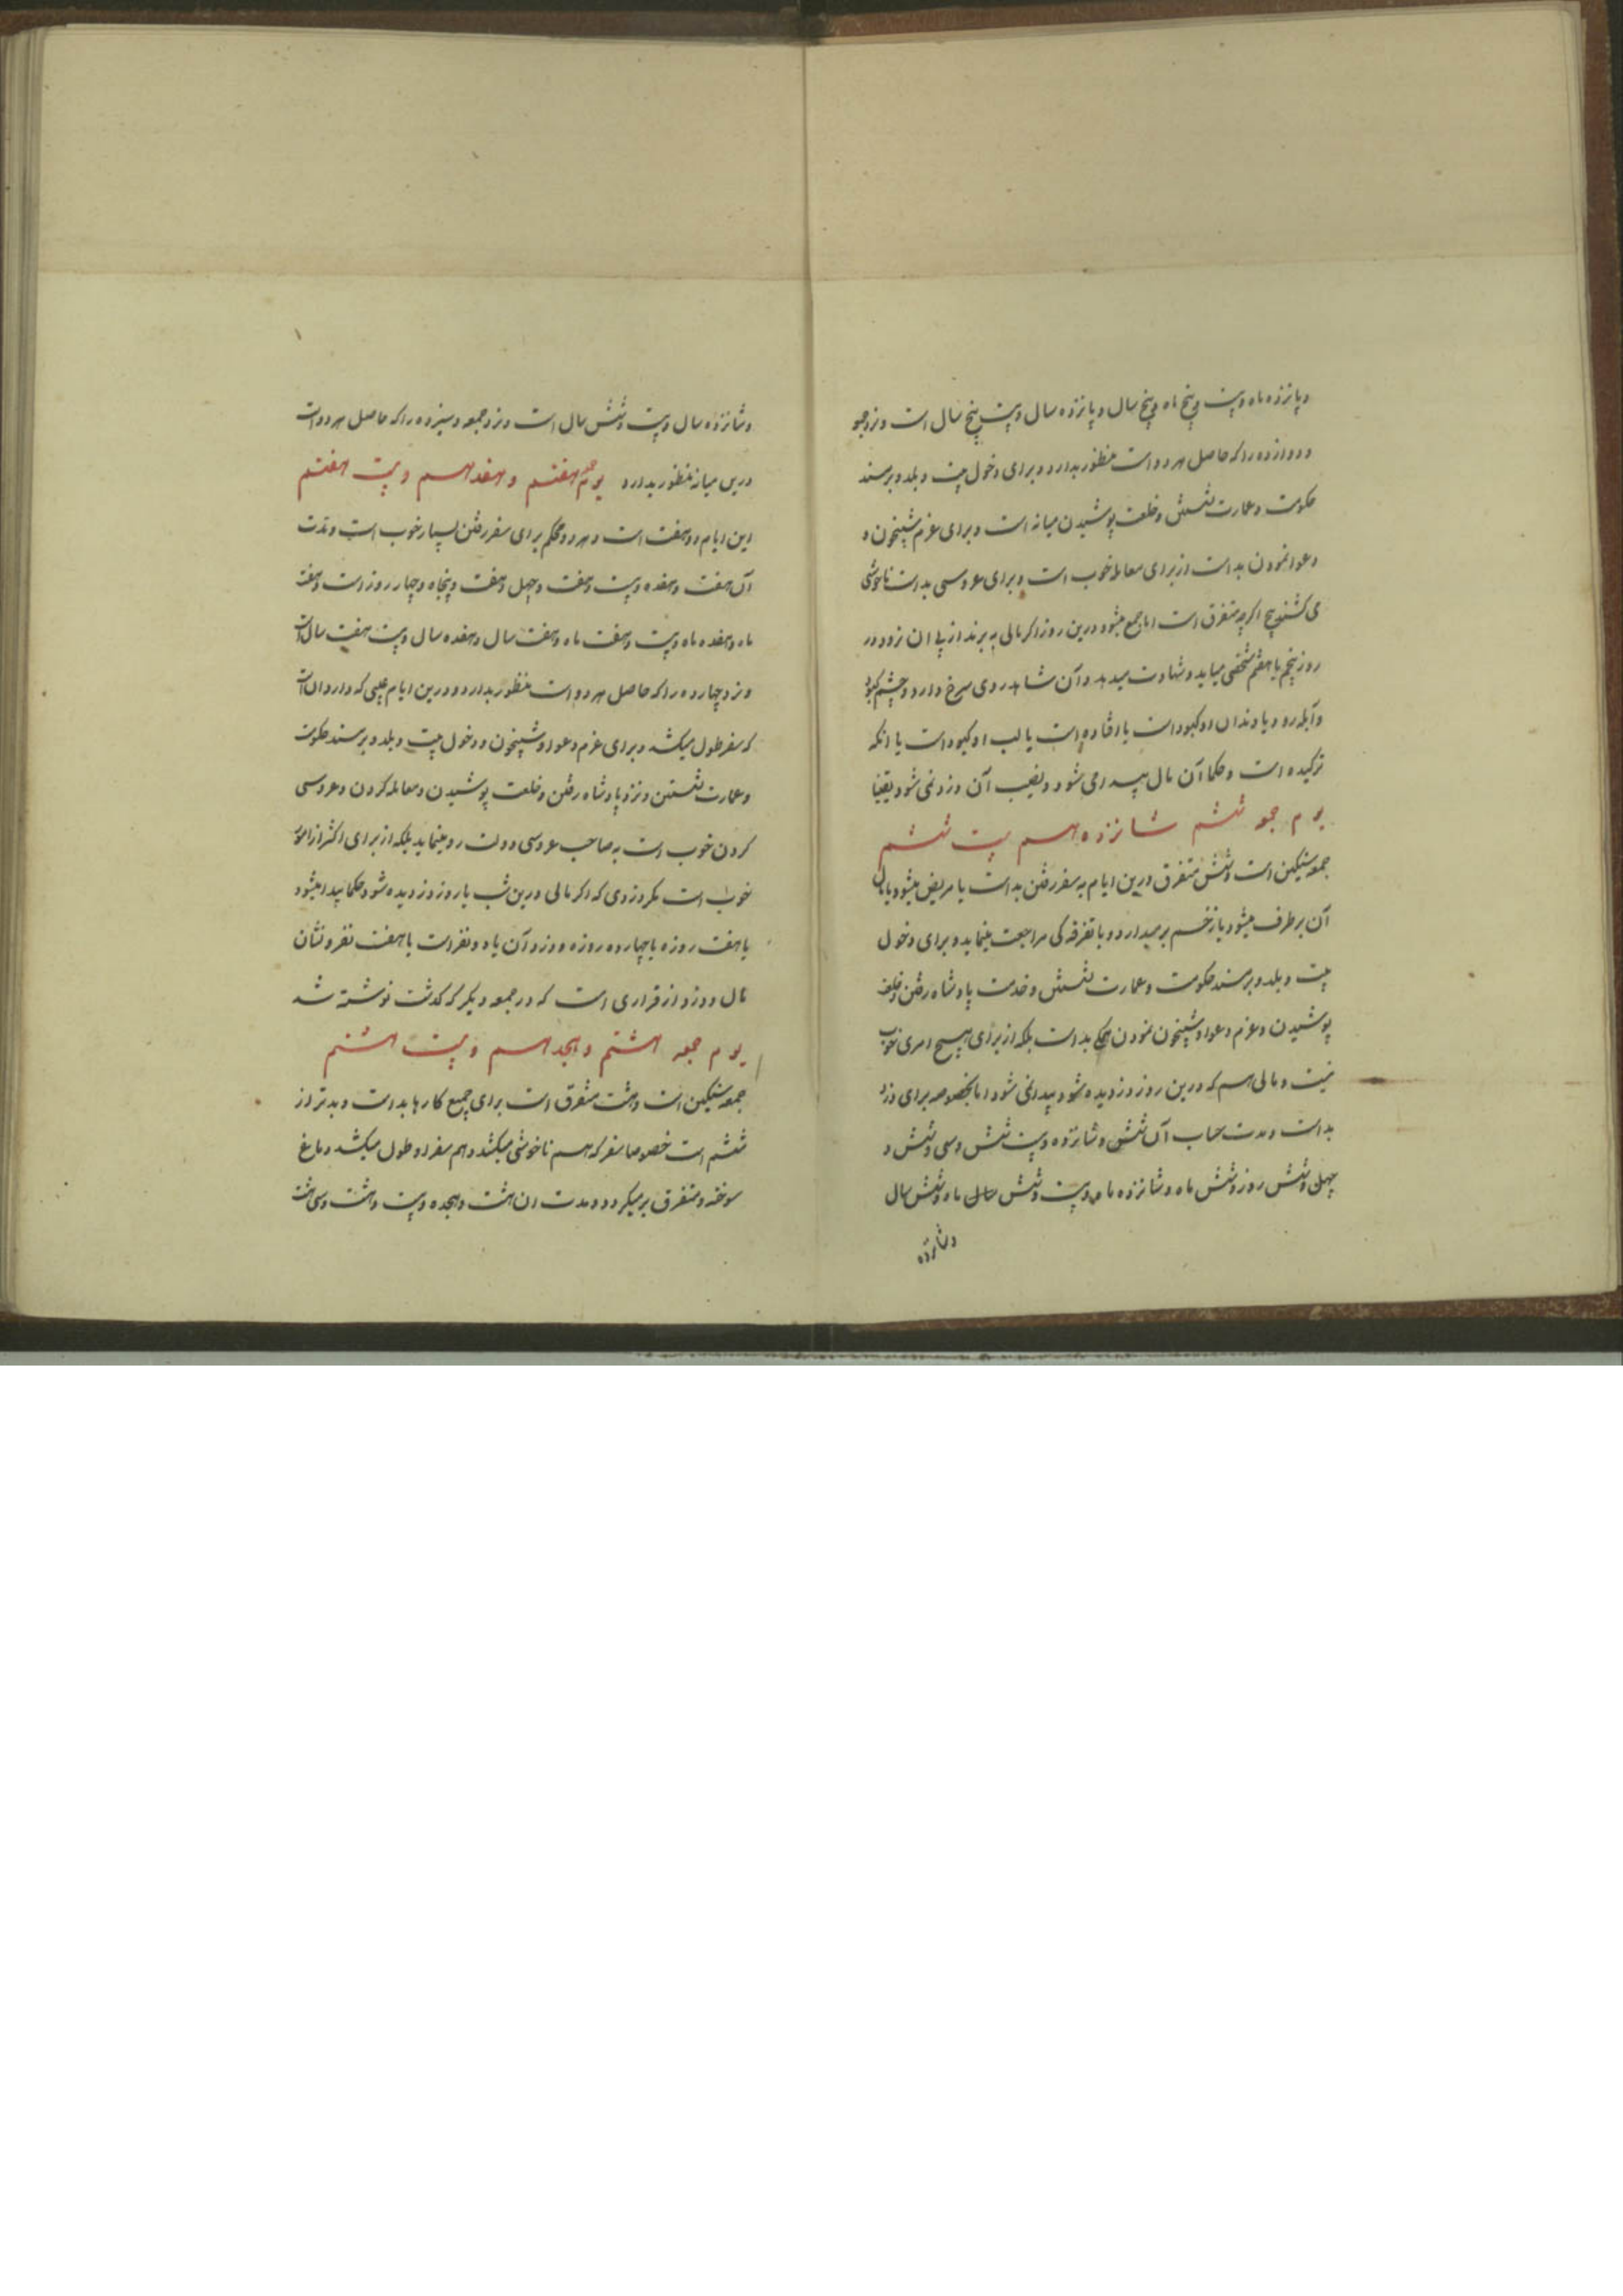 و پانزده ماه و بیست و پنج ماه و پنج سال و پانزده سال و بیست پنج سال است و نزد جمعه
و دوازده را که حاصل هر دو است منظور بدارد و برای دخول بیت و بلد و بر مسند
حکومت و عمارت نشستن و خلعت پوشیدن میانه است و برای عزم شبیخون و
دعوا نمودن بد است از برای معامله خوب است و برای عروسی بد است ناخوشی
می کشند پنج اگرچه متفرق است اما جمع میشود درین روز اگر مالی به برند از پی ان نرود در
روز پنجم یا هفتم شخصی میاید و شهادت میدهد و آن شاهد روی سرخ دارد و چشم کبود
و آبله رو و یا دندان او کبود است یا افتاده است یا لب او کبود است یا انکه
ترکیده است و حکما آن مال پیدا می شود و نصیب آن دزد نمی شود یقینا
یوم جمعه ششم شانزدهم بیست ششم
جمعه سنگین است و شش متفرق درین ایام به سفر رفتن بد است یا مریض میشود یا مال
آن برطرف میشود یا زخم برمیدارد و با تفرقه کی مراجعت مینماید و برای دخول
بیت و بلد و بر مسند حکومت و عمارت نشستن و خدمت پادشاه رفتن و خلعت
پوشیدن و عزم دعوا و شبیخون نمودن همگی بد است بلکه از برای هیچ امری خوب
نیست و مالی هم که درین روز دزدیده شود پیدا نمی شود اما بخصوصه برای دزد
بد است و مدت حساب آن شش و شانزده و بیست شش و سی و شش و
چهل و شش روز و شش ماه و شانزده ماه و بیست و شش ماه و شش سال
و شانزده
و شانزده سال و بیست و شش سال است و نزد جمعه و سیزده را که حاصل هر دو است
درین میانه منظور بدارد یوم جمعه هفتم و هفدهم و بیست هفتم
این ایام دو هفت است و هر دو محکم برای سفر رفتن بسیار خوب است و مدت
آن هفت و هفده و بیست و هفت و چهل و هفت و پنجاه و چهار روز است و هفت
ماه و هفده ماه و بیست و هفت ماه و هفت سال و هفده سال و بیست هفت سال است
و نزد چهارده را که حاصل هر دو است منظور بدارد و درین ایام عیبی که دارد ان است
که سفر طول میکشد و برای عزم دعوا و شبیخون و دخول بیت و بلد و بر مسند حکومت
و عمارت نشستن و نزد پادشاه رفتن و خلعت پوشیدن و معامله کردن و عروسی
کردن خوب است به صاحب عروسی دولت رو مینماید بلکه از برای اکثر از امور
خوب است مگر دزدی که اگر مالی درین شب یا روز دزدیده شود حکما پیدا میشود
یا هفت روزه یا چهارده روزه و دزد آن یا دو نفر است یا هفت نفر و نشان
مال و دزد از قراری است که در جمعه دیگر که گذشت نوشته شد
یوم جمعه هشتم و هجدهم و بیست هشتم
جمعه سنگین است و هشت متفرق است برای جمیع کارها بد است و بدتر از
ششم است خصوصا سفر که هم ناخوشی میکشد و هم سفر او طول میکشد و دماغ
سوخته و متفرق برمیگردد و مدت ان هشت و هجده و بیست و هشت و سی هشت